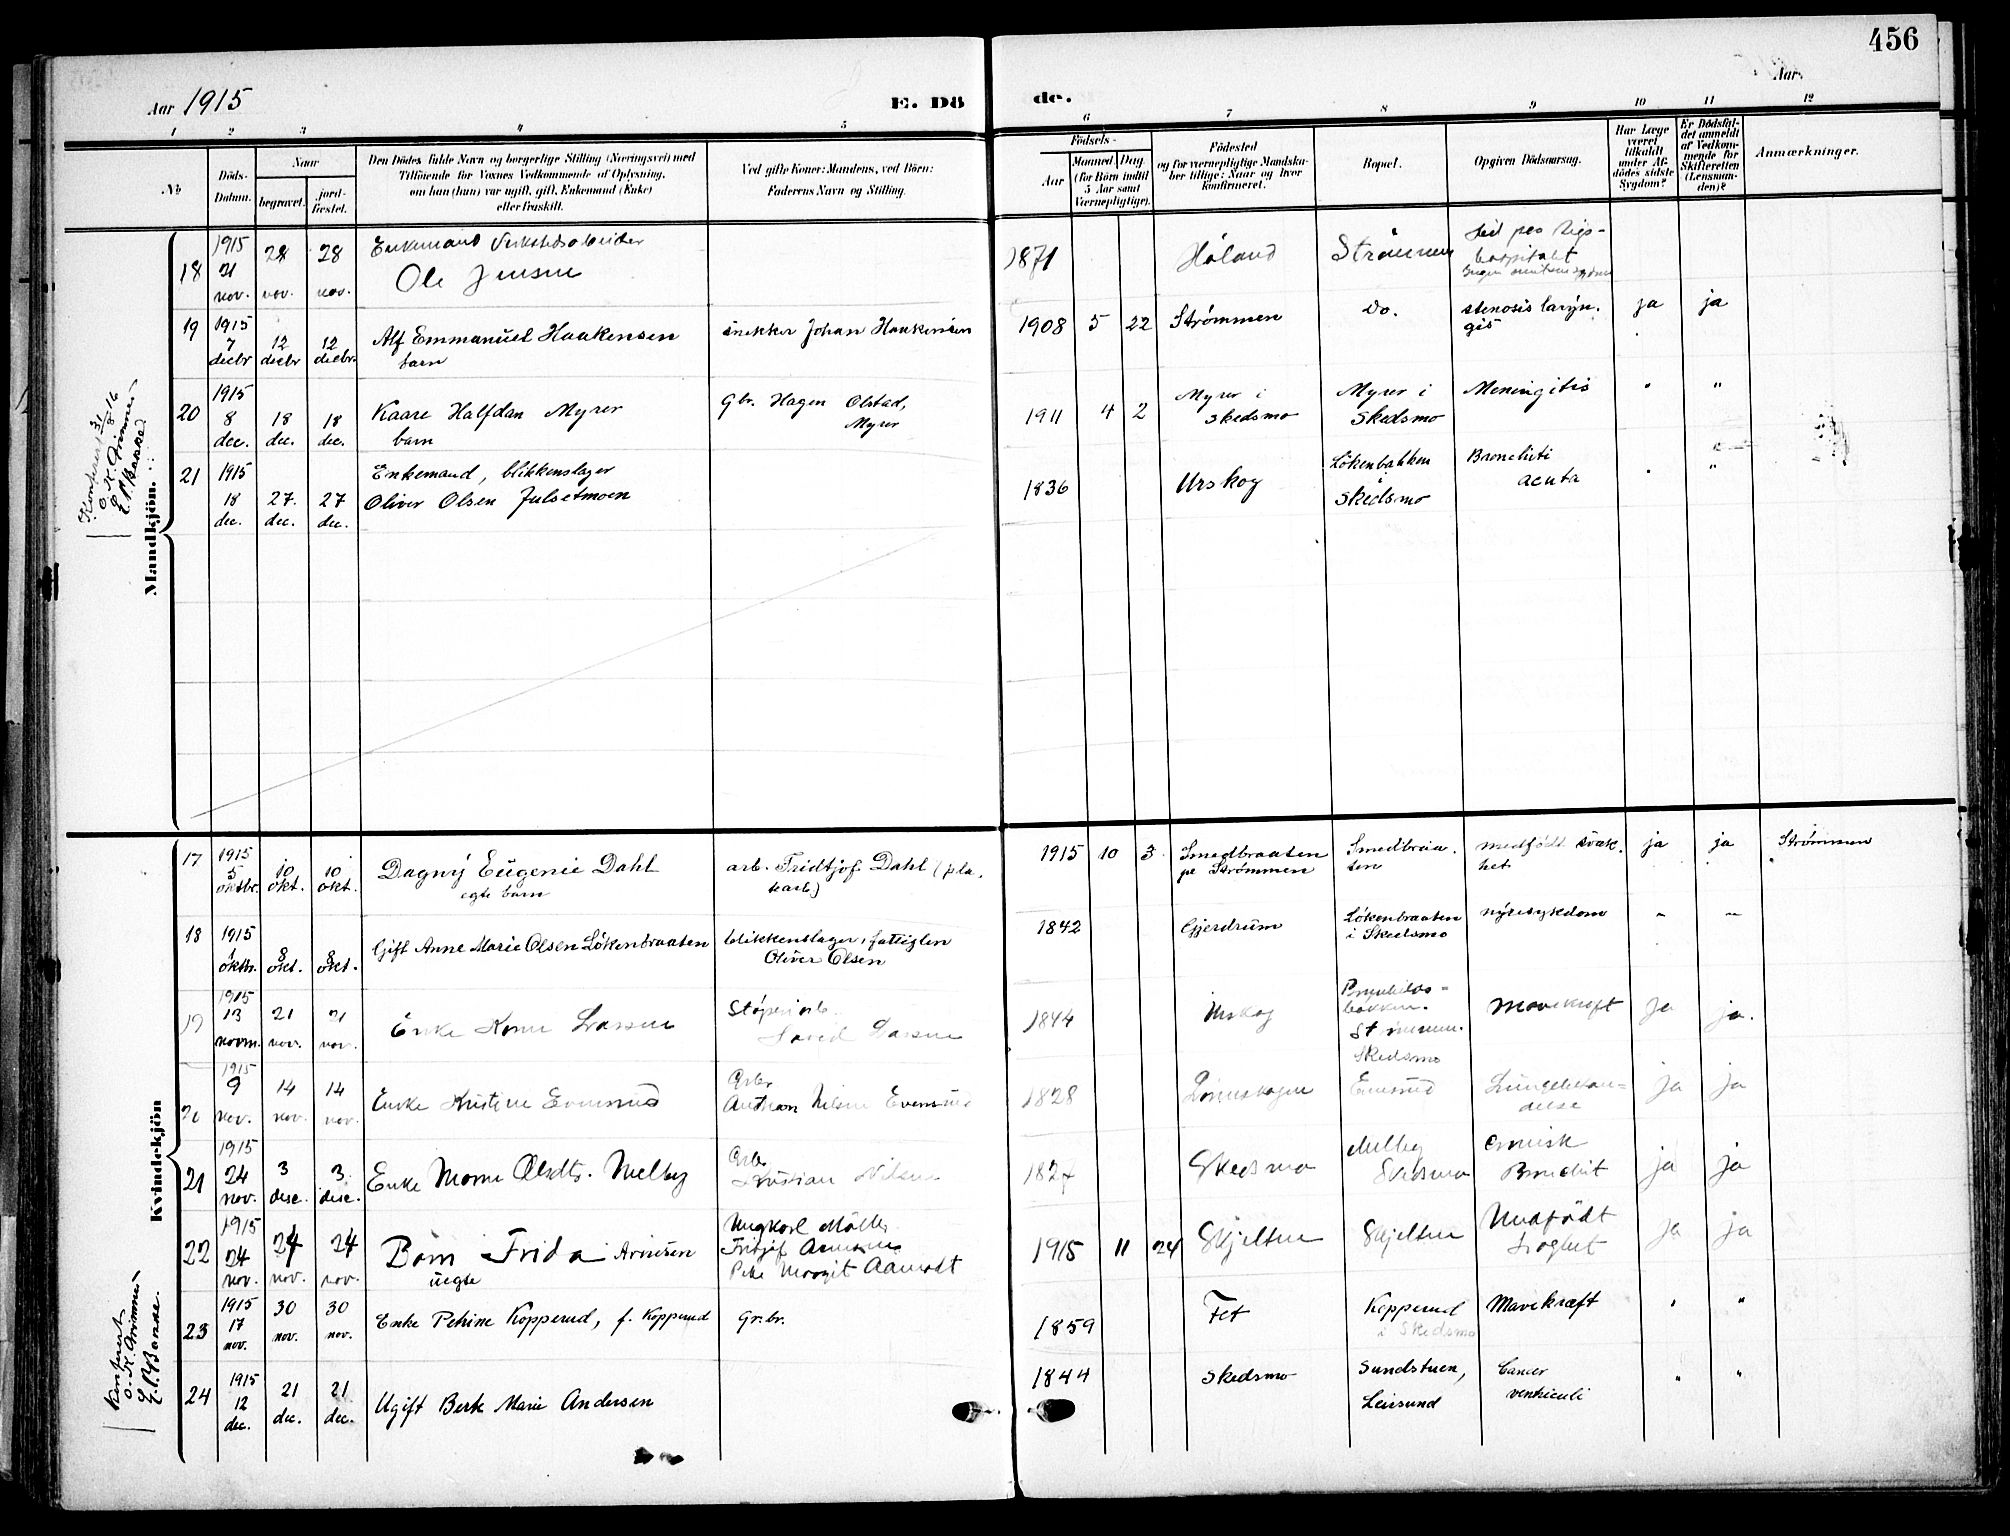 456
Aar 1915
E. Dö
de.
Aar
1 2 3 4 5 6 7 8 9 10 11 12
No
Döds-Datum.
Naar
begravet.
jord-fæstet.
Den Dödes fulde Navn og borgerlige Stilling (Næringsvei) med
Tilföiende for Voxnes Vedkommende af Oplysning,
om han (hun) var ugift, gift, Enkemand (Enke)
eller fraskilt.
Ved gifte Koner: Mandens, ved Börn:
Faderens Navn og Stilling.
Födsels-
Aar
Maaned Dag
(for Börn indtil
5 Aar samt
Værnepligtige).
Födested
og for værnepligtige Mandska-
ber tillige: Naar og hvor
konfirmeret.
Bopæl.
Opgiven Dödsaarsag.
Har Læge
været
tilkaldt
under Af-
dödes sidste
Sygdom?
Er Dödsfal-
det anmeldt
af Vedkom-
mende for
Skifteretten
(Lensman-
den)?
Anmærkninger.
Mandkjön.
18 1915 21 nov. 28 nov. 28 nov. Enkemand Verkstedsarbeider
Ole Jensen 1871 Høland Strømmen
19 1915 7 decbr 12 decbr 12 decbr. Alf Emmanuel Haakensen
barn
snekker Johan Haakensen 1908 5 22 Strømmen Do. stenosis laryn-
gis ja ja
20 1915 8 dec. 18 dec. 18 dec. Kaare Halfdan Myrer
barn
Gbr. Hagen Olstad,
Myrer
1911 4 2 Myrer i
Skedsmo
Myrer i
Skedsmo
Meningitis " "
21 1915 18 dec. 27. dec. 27 dec. Enkemand, blikkenslager
Oliver Olsen Julsetmoen
1836 Urskog Lökenbakken
Skedsmo
acuta " "
Kvindekjön
17 1915 5 oktbr. 10 okt. 10 okt. Dagny Eugenie Dahl
egte barn
arb. Fridtjof Dahl
1915 10 3 Smedbraaten
pr Strømmen
Smedbraa-
ten
medfødt svak-
het
ja ja Strømmen
18 1915 1 oktbr. 8 okt. 8 okt. Gift Anne Marie Olsen Lökenbraaten
blikkenslager, fattiglem
Oliver Olsen
1842 Gjerdrum Lökenbraaten
i Skedsmo
nyresykdom " "
19 1915 13 novm. 21 nov. 21 nov. Enke Larsen
Støperiarb.
Larsen
1844 Urskog
Strømmen.
Skedsmo
Mavekræft ja ja.
20 1915 9 nov. 14 nov. 14 nov. Enke Kristine Evensrud
Arb.
Anthon Nilsen Evensrud
1828 Lørenskogen Evensrud Lungebetæn-
delse
ja ja
21 1915 24 nov. 3 desc. 3 desc. Enke Marie Olsdtr. Melby
Arb.
Kristian Nilsen
1827 Skedsmo Melby
Skedsmo
Cronisk
Bronchit
ja ja
22 1915 24 nov. 24 nov. 24 nov. Barn Frida Arnesen
uegte
Ungkarl Møller
Fritjof Arnesen
Pike Margit Aamodt
1915 11 24 Skjetten Skjetten Medfødt
svaghet
ja ja
23 1915 17 nov. 30 nov. 30 nov. Enke Petrine Kopperud, f. Kopperud Gr.br.
1859 Fet Kopperud
i Skedsmo
Mavekræft " "
24 1915 12 dec. 21 dec. 21 dec. Ugift Berte Marie Andersen
1844 Skedsmo Sundstuen,
Leirsund
Cancer
ventriculi
" "